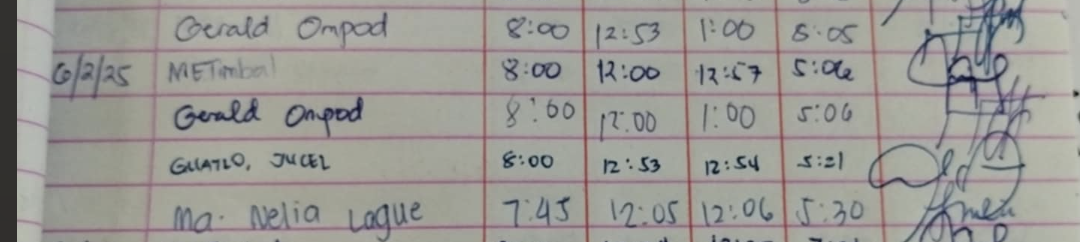 Gerald Ompod 8:00 12:53 1:00 5:05
6/2/25 METimbal 8:00 12:00 12:57 5:06
Gerald Ompod 8:00 12:00 1:00 5:06
GUATLO, JUCEL 8:00 12:53 12:54 5:21
Ma. Nelia Lague 7:45 12:05 12:06 5:30